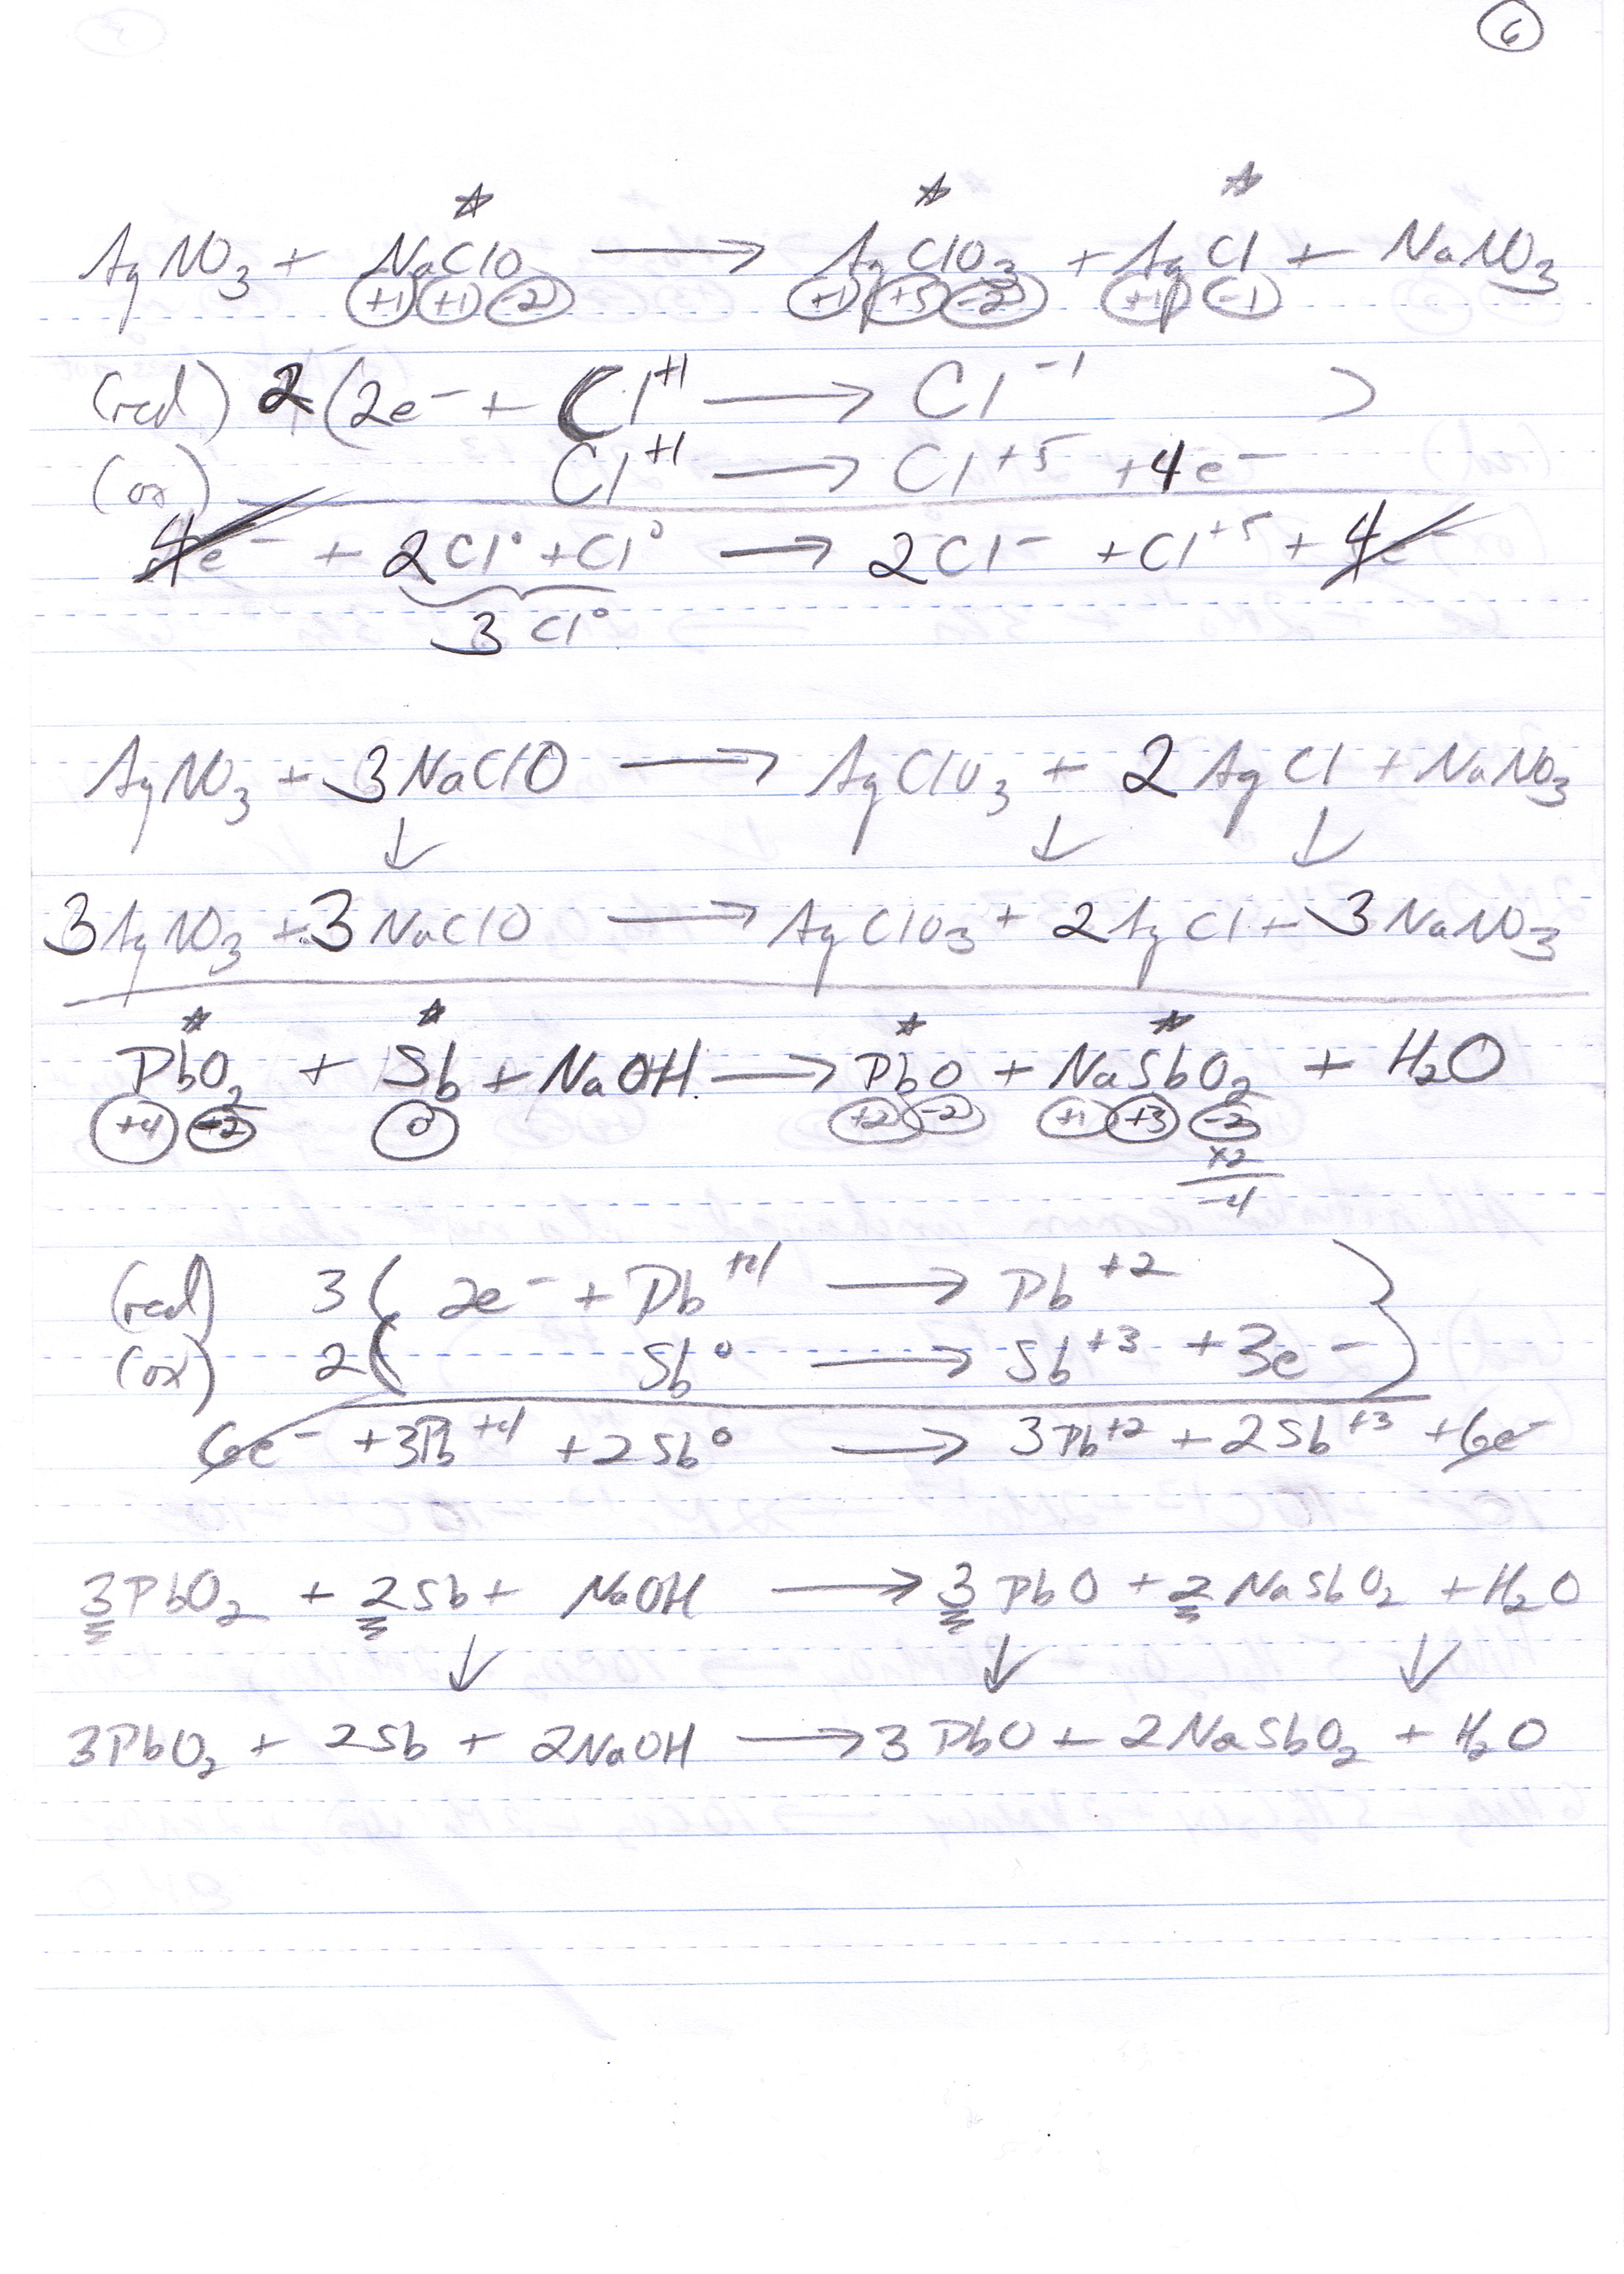 6
AgNO₃ + NaClO ⟶ AgClO₃ + AgCl + NaNO₃
+1 +1 -2 +1 +5 -2 +1 -1
(red) 2(2e⁻ + Cl⁺¹ ⟶ Cl⁻¹ )
(ox) Cl⁺¹ ⟶ Cl⁺⁵ + 4e⁻
4e⁻ + 2Cl° + Cl° ⟶ 2Cl⁻ + Cl⁺⁵ + 4e⁻
3 Cl°
AgNO₃ + 3NaClO ⟶ AgClO₃ + 2AgCl + NaNO₃
↓ ↓ ↓
3AgNO₃ + 3NaClO ⟶ AgClO₃ + 2AgCl + 3NaNO₃
PbO₂ + Sb + NaOH ⟶ PbO + NaSbO₂ + H₂O
+4 -2 0 +2 -2 +1 +3 -2
×2
-4
(red) 3( 2e⁻ + Pb⁺⁴ ⟶ Pb⁺² )
(ox) 2( Sb⁰ ⟶ Sb⁺³ + 3e⁻ )
6e⁻ + 3Pb⁺⁴ + 2Sb⁰ ⟶ 3Pb⁺² + 2Sb⁺³ + 6e⁻
3PbO₂ + 2Sb + NaOH ⟶ 3PbO + 2NaSbO₂ + H₂O
↓ ↓ ↓
3PbO₂ + 2Sb + 2NaOH ⟶ 3PbO + 2NaSbO₂ + H₂O